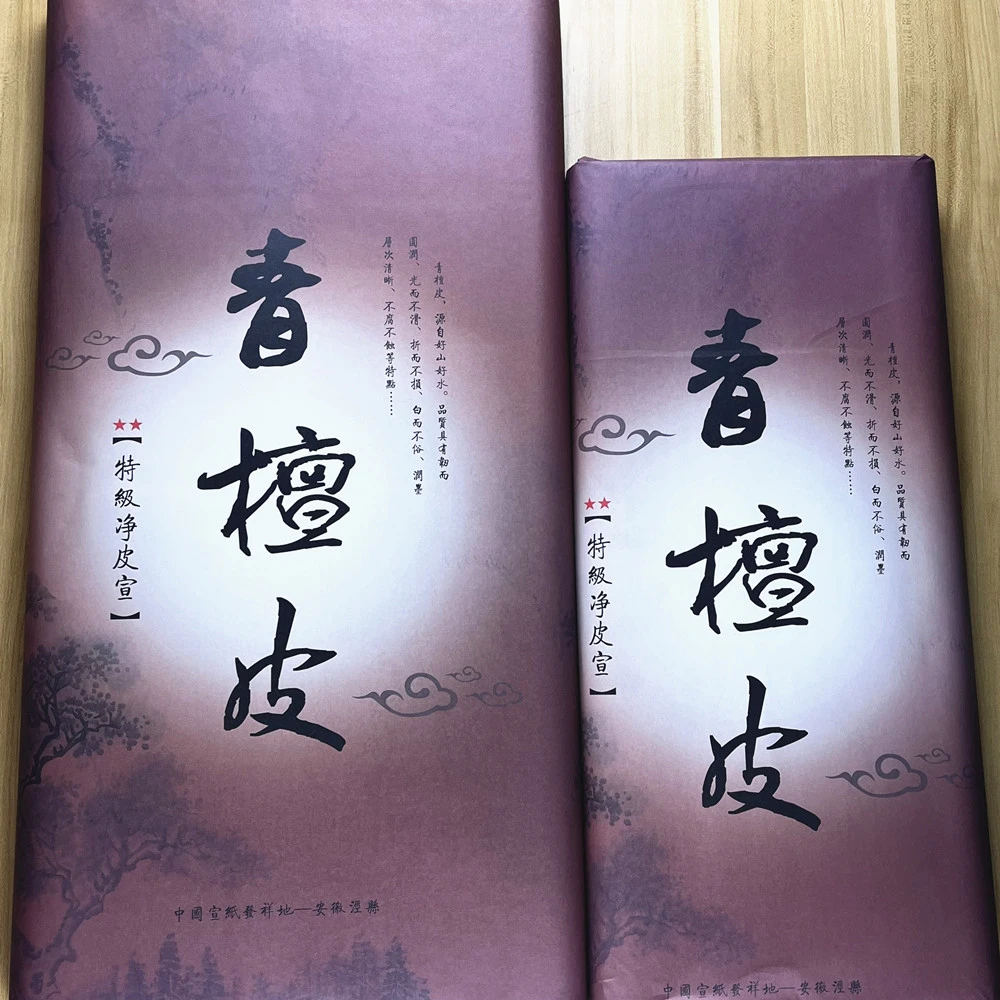 青檀皮
青檀皮，源自好山好水。品質具有韌而
圓潤、光而不滑、折而不損、白而不俗、潤墨
層次清晰、不腐不蝕等特點……
【特級净皮宣】
中國宣紙發祥地—安徽涇縣
青檀皮
青檀皮，源自好山好水。品質具有韌而
圓潤、光而不滑、折而不損、白而不俗、潤墨
層次清晰、不腐不蝕等特點……
【特級净皮宣】
中國宣紙發祥地—安徽涇縣